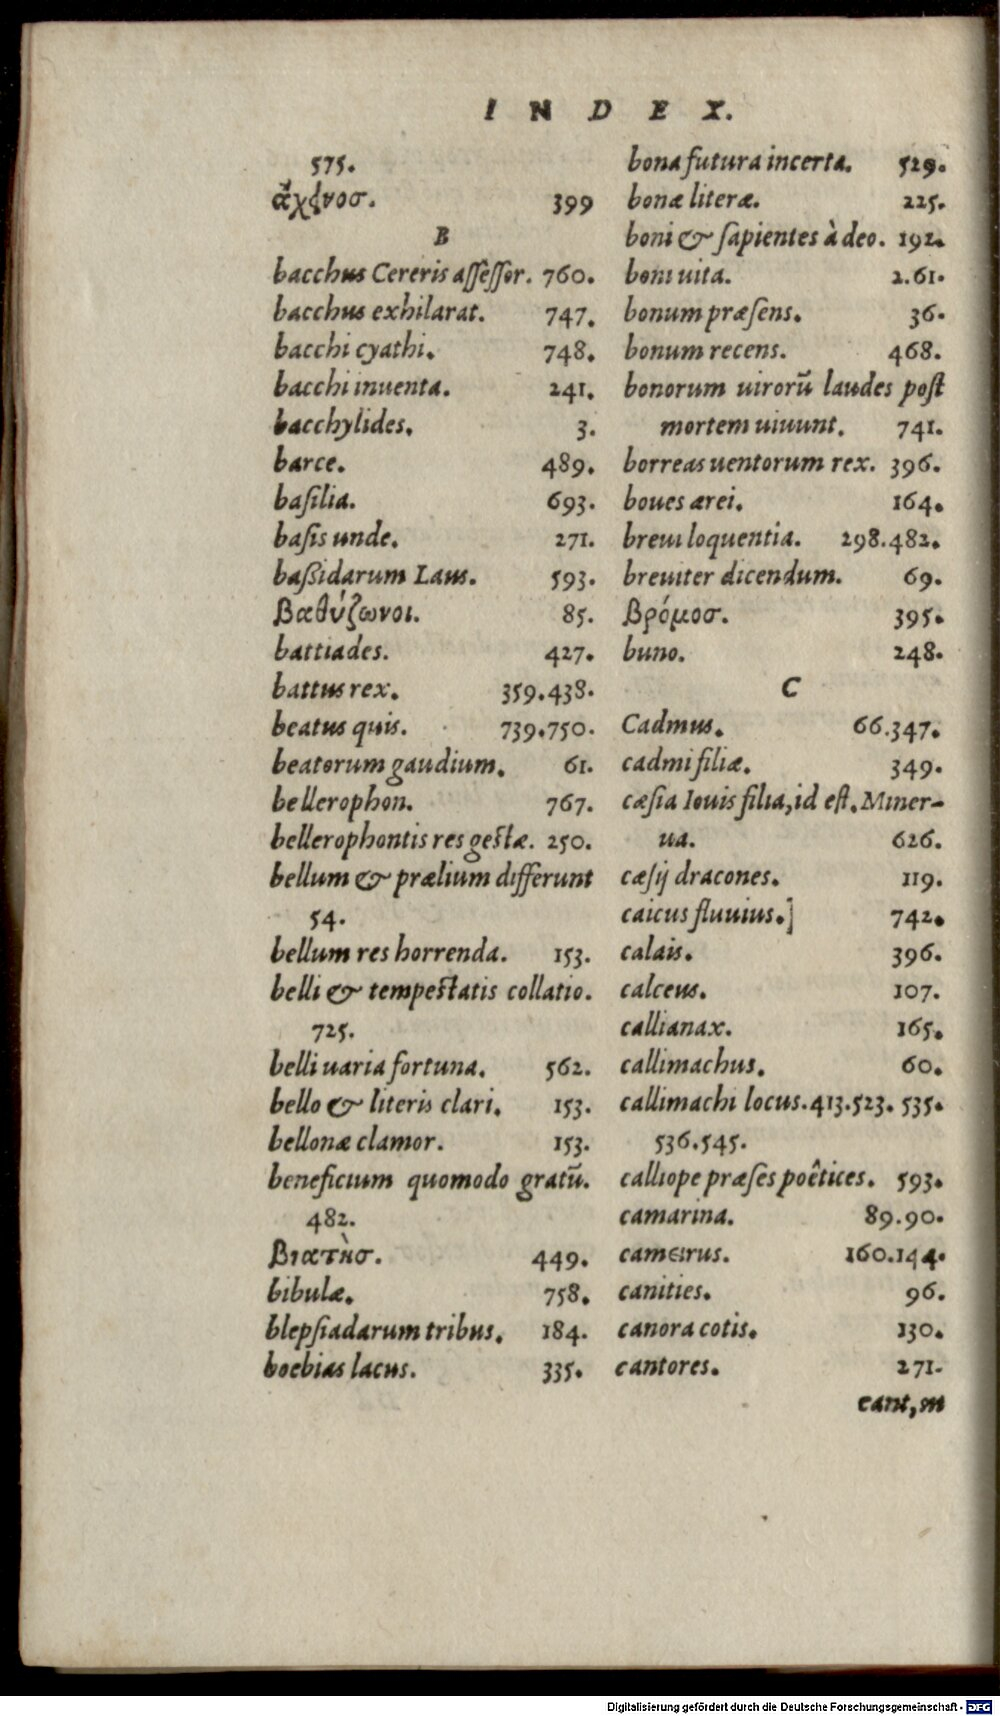 INDEX.
575.
ἄχενοσ. 399
B
bacchus Cereris aſſeſſor. 760.
bacchus exhilarat. 747.
bacchi cyathi. 748.
bacchi inuenta. 241.
bacchylides. 3.
barce. 489.
baſilia. 693.
baſis unde. 271.
baßidarum Laus. 593.
Βαθύζωνοι. 85.
battiades. 427.
battus rex. 359.438.
beatus quis. 739.750.
beatorum gaudium. 61.
bellerophon. 767.
bellerophontis res geſtæ. 250.
bellum & prælium differunt
54.
bellum res horrenda. 153.
belli & tempeſtatis collatio.
725.
belli uaria fortuna. 562.
bello & literis clari. 153.
bellonæ clamor. 153.
beneficium quomodo gratũ.
482.
βιατὴσ. 449.
bibulæ. 758.
blepſiadarum tribus. 184.
boebias lacus. 335.
bona futura incerta. 529.
bonæ literæ. 225.
boni & ſapientes à deo. 192.
boni uita. 2.61.
bonum præſens. 36.
bonum recens. 468.
bonorum uirorũ laudes poſt
mortem uiuunt. 741.
borreas uentorum rex. 396.
boues ærei. 164.
breui loquentia. 298.482.
breuiter dicendum. 69.
βρόμοσ. 395.
buno. 248.
C
Cadmus. 66.347.
cadmi filiæ. 349.
cæſia Iouis filia, id eſt. Miner-
ua. 626.
cæſij dracones. 119.
caicus fluuius.] 742.
calais. 396.
calceus. 107.
callianax. 165.
callimachus. 60.
callimachi locus.413.523. 535.
536.545.
calliope præſes poêtices. 593.
camarina. 89.90.
cameirus. 160.144.
canities. 96.
canora cotis. 130.
cantores. 271.
cant,m
Digitalisierung gefördert durch die Deutsche Forschungsgemeinschaft - DFG